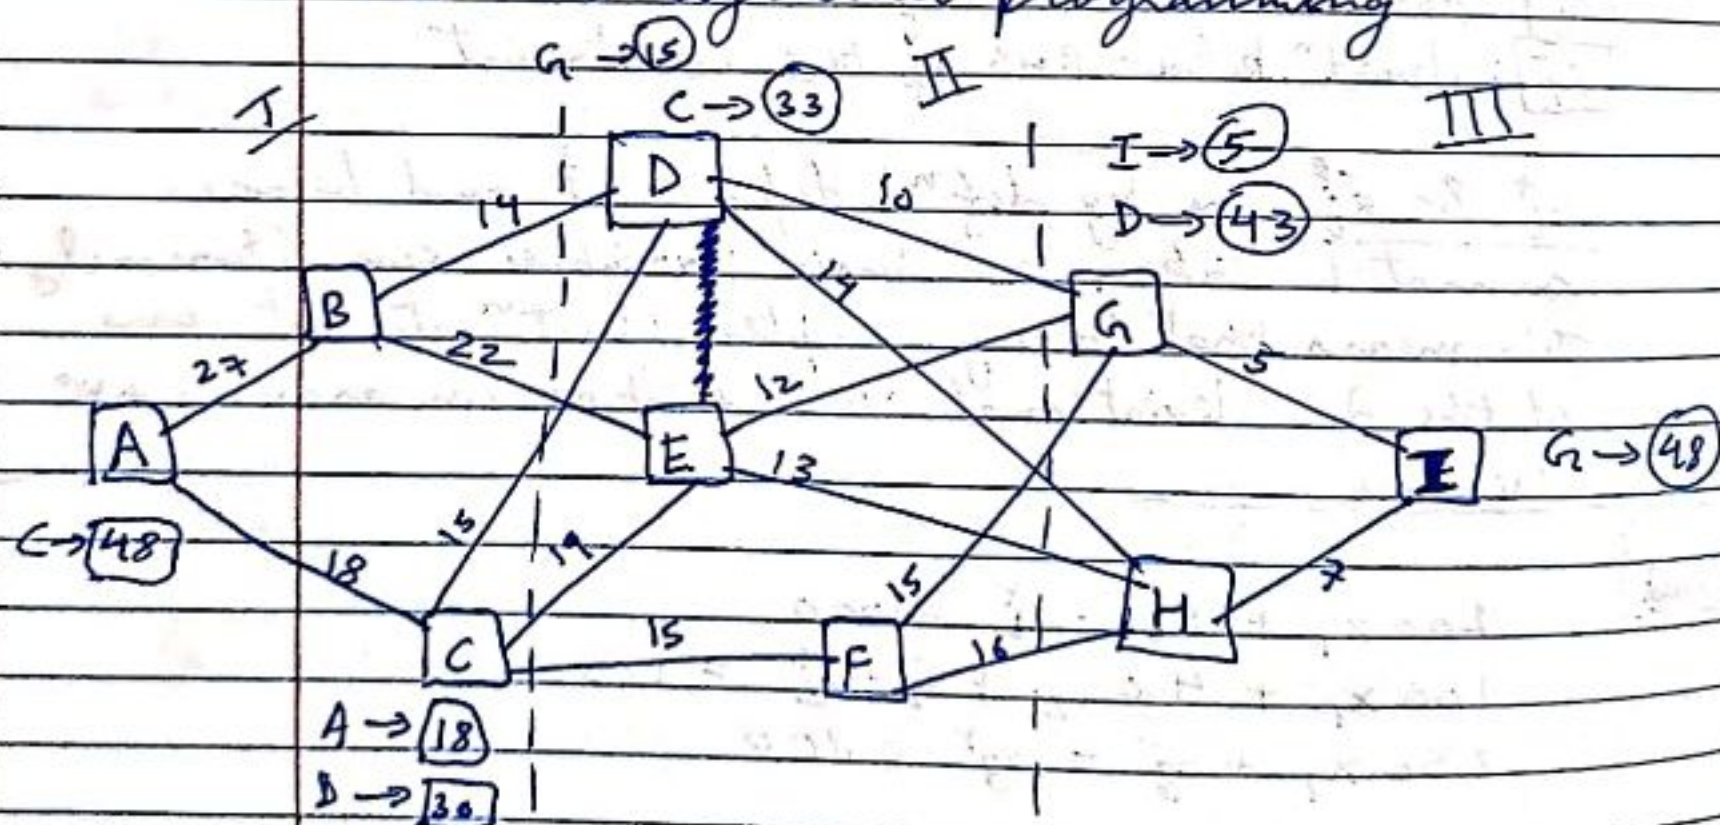 programming
G → 15
C → 33
I
II
III
I → 5
D → 43
D
14
10
B
14
G
27
22
12
5
A
E
13
I
G → 48
C → 48
18
15
19
15
7
H
C
15
F
16
A → 18
D → 30